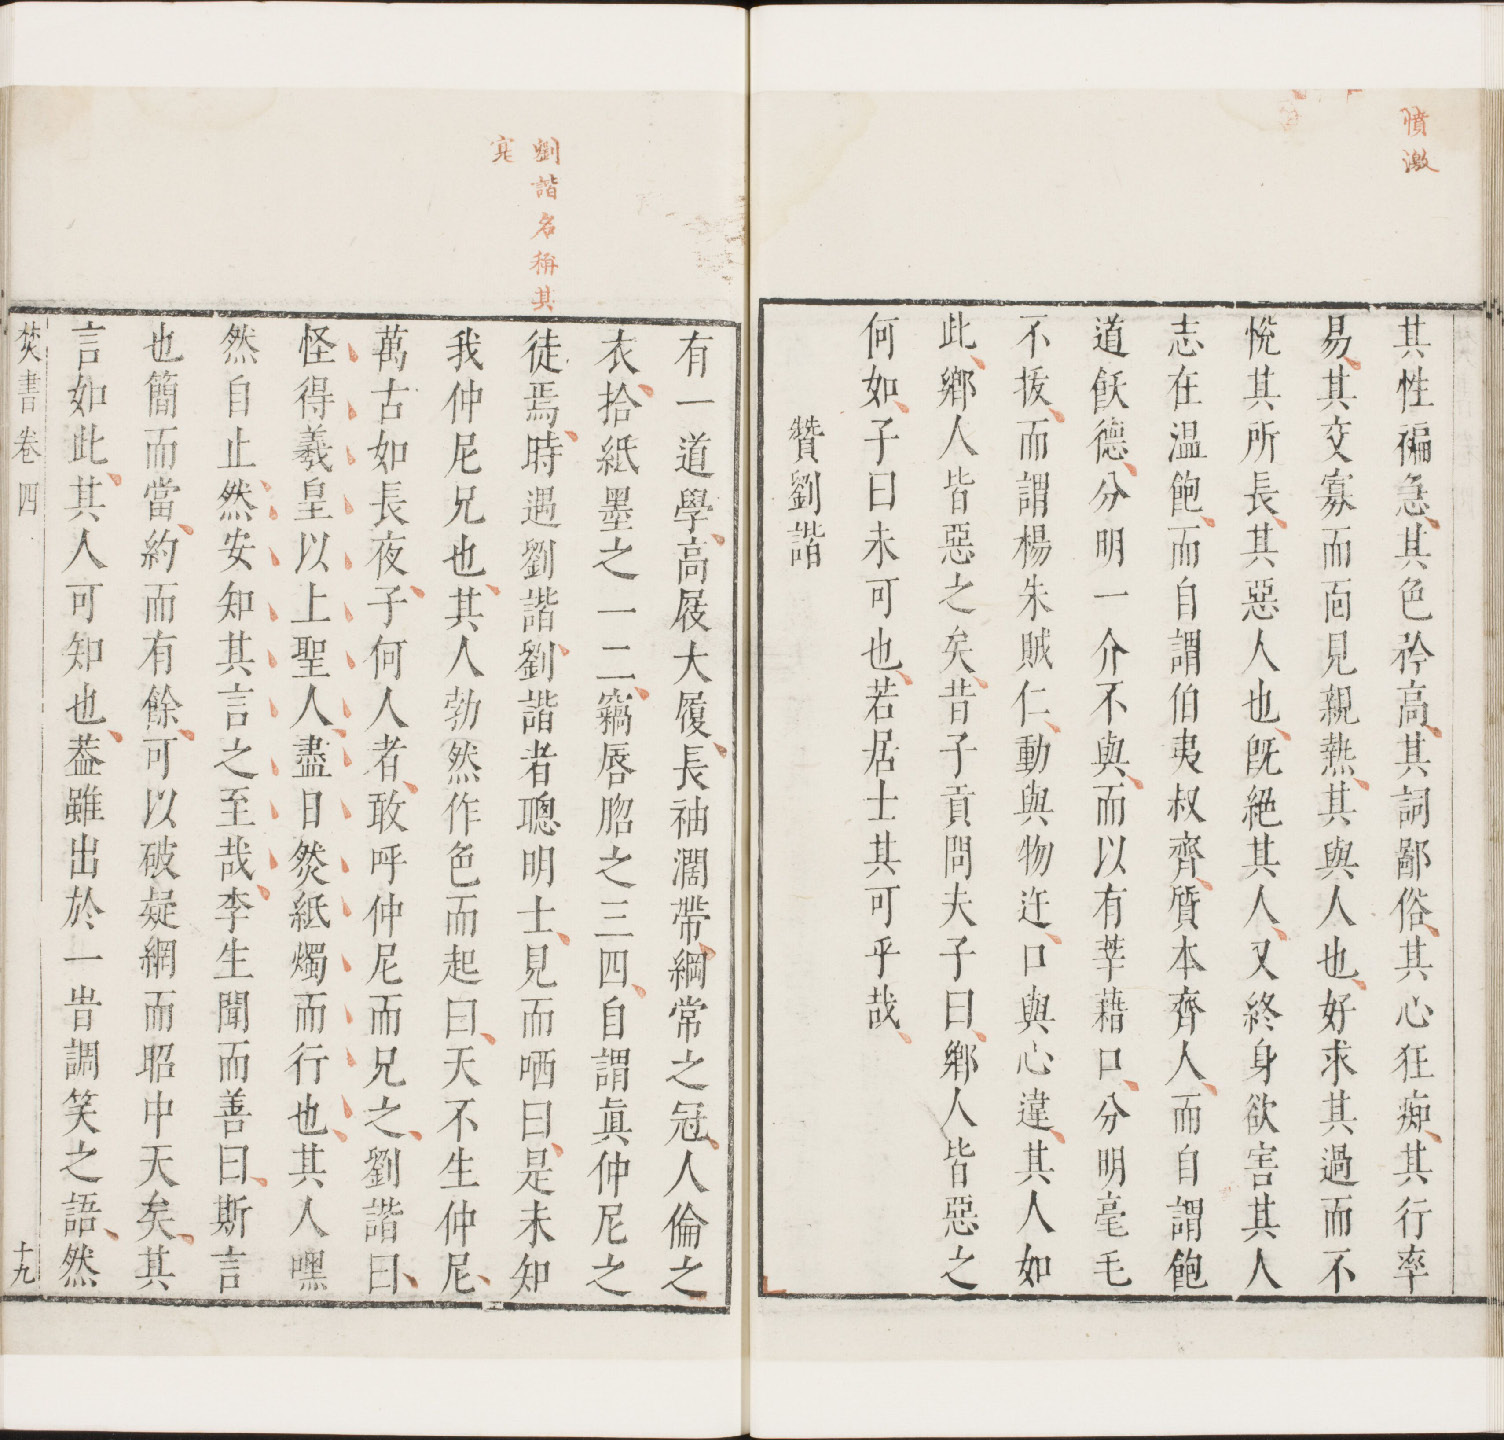 憤激
其性褊急其色矜高其詞鄙俗其心狂痴其行率
易其交寡而面見親熱其與人也好求其過而不
悅其所長其惡人也旣絕其人又終身欲害其人
志在温飽而自謂伯夷叔齊質本齊人而自謂飽
道飫德分明一介不與而以有莘藉口分明毫毛
不拔而謂楊朱賊仁動與物迕口與心違其人如
此鄉人皆惡之矣昔子貢問夫子曰鄉人皆惡之
何如子曰未可也若居士其可乎哉
贊劉諧
劉諧名稱其
寔
有一道學高屐大履長袖濶帶綱常之冠人倫之
衣拾紙墨之一二竊唇脗之三四自謂眞仲尼之
徒焉時遇劉諧劉諧者聰明士見而哂曰是未知
我仲尼兄也其人勃然作色而起曰天不生仲尼
萬古如長夜子何人者敢呼仲尼而兄之劉諧曰
怪得羲皇以上聖人盡日燃紙燭而行也其人嘿
然自止然安知其言之至哉李生聞而善曰斯言
也簡而當約而有餘可以破疑網而昭中天矣其
言如此其人可知也葢雖出於一旹調笑之語然
焚書卷四
十九